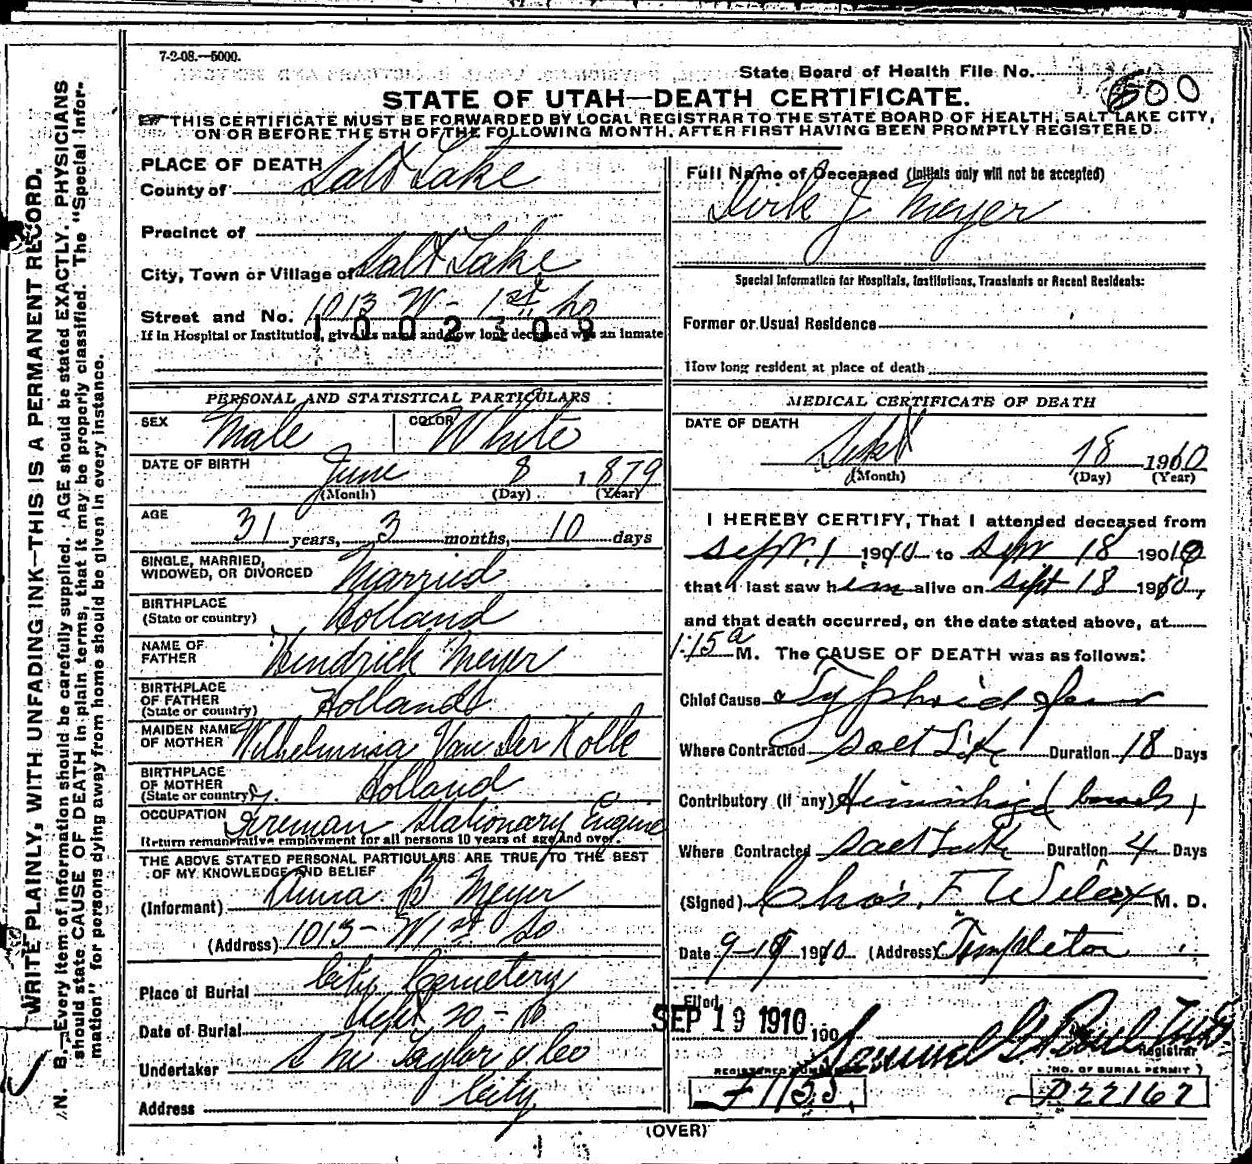 7-2-08.—5000.
State Board of Health File No.
600
STATE OF UTAH—DEATH CERTIFICATE.
THIS CERTIFICATE MUST BE FORWARDED BY LOCAL REGISTRAR TO THE STATE BOARD OF HEALTH, SALT LAKE CITY,
ON OR BEFORE THE 5TH OF THE FOLLOWING MONTH, AFTER FIRST HAVING BEEN PROMPTLY REGISTERED.
WRITE PLAINLY, WITH UNFADING INK—THIS IS A PERMANENT RECORD.
N. B.—Every item of information should be carefully supplied. AGE should be stated EXACTLY. PHYSICIANS
should state CAUSE OF DEATH in plain terms, that it may be properly classified. The "Special Infor-
mation" for persons dying away from home should be given in every instance.
PLACE OF DEATH
County of Salt Lake
Precinct of
City, Town or Village of Salt Lake
Street and No. 1013 W- 1st So
1002309
If in Hospital or Institution, give its name and how long deceased was an inmate
PERSONAL AND STATISTICAL PARTICULARS
SEX Male COLOR White
DATE OF BIRTH June 8 1879
(Month) (Day) (Year)
AGE 31 years, 3 months, 10 days
SINGLE, MARRIED,
WIDOWED, OR DIVORCED Married
BIRTHPLACE
(State or country) Holland
NAME OF
FATHER Hendrick Meyer
BIRTHPLACE
OF FATHER
(State or country) Holland
MAIDEN NAME
OF MOTHER Wilhelmina Van Der Kolk
BIRTHPLACE
OF MOTHER
(State or country) Holland
OCCUPATION Fireman Stationary Engine
Return remunerative employment for all persons 10 years of age and over.
THE ABOVE STATED PERSONAL PARTICULARS ARE TRUE TO THE BEST
OF MY KNOWLEDGE AND BELIEF
(Informant) Anna B Meyer
(Address) 1013- W 1st So
Place of Burial City Cemetery
Date of Burial Sept 20-10
Undertaker S M Taylor & Co
Address City
Full Name of Deceased (Initials only will not be accepted)
Dirk J Meyer
Special Information for Hospitals, Institutions, Transients or Recent Residents:
Former or Usual Residence
How long resident at place of death
MEDICAL CERTIFICATE OF DEATH
DATE OF DEATH
Sept 18 1910
(Month) (Day) (Year)
I HEREBY CERTIFY, That I attended deceased from
Sept. 1 1910 to Sept 18 1910
that I last saw him alive on Sept 18 1910,
and that death occurred, on the date stated above, at
1:15 a M. The CAUSE OF DEATH was as follows:
Chief Cause Typhoid fever
Where Contracted Salt Lake Duration 18 Days
Contributory (if any) Hemorrhage (bowels)
Where Contracted Salt Lake Duration 4 Days
(Signed) Chas. F Wilcox M. D.
Date 9-18 1910 (Address) Templeton
Filed
SEP 19 1910 190
Samuel G Paul
Registrar
REGISTERED NUMBER
NO. OF BURIAL PERMIT
F1155
D22167
(OVER)